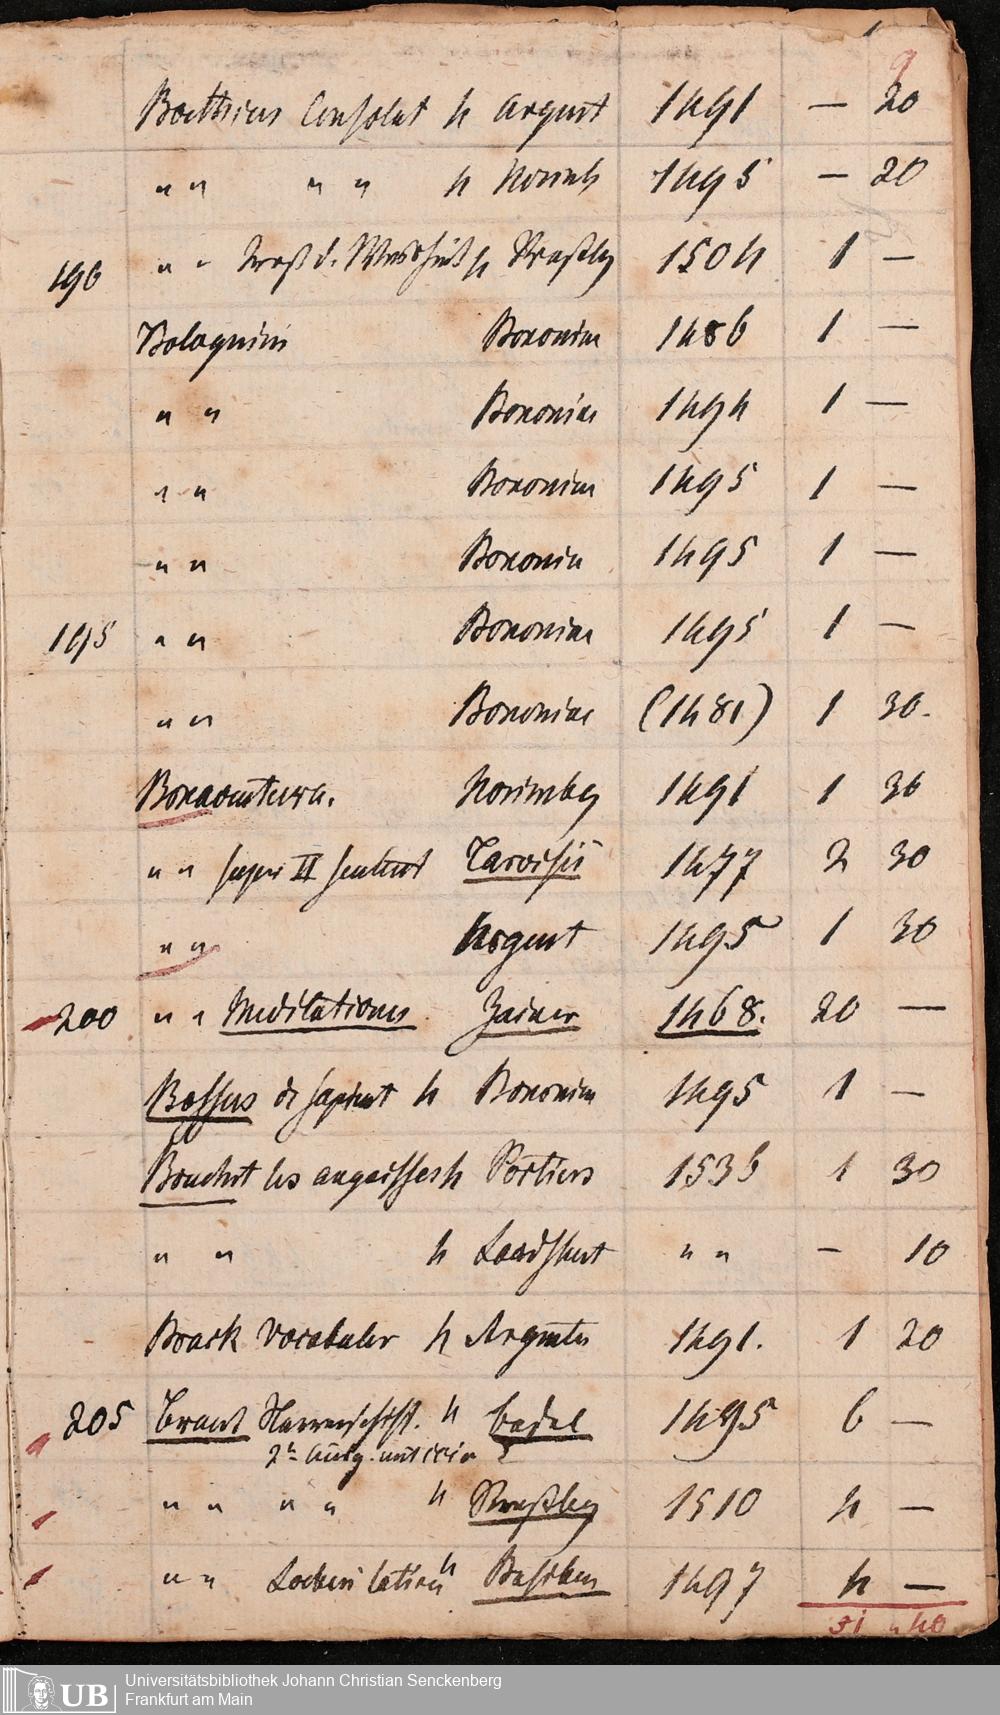 9
Boethius Consolat 4 Argent 1491 — 20
" " " " 4 Norinb 1495 — 20
190 " " 4 Straßbg 1504 1 —
Bolognini Bononiae 1486 1 —
" " Bononiae 1494 1 —
" " Bononiae 1495 1 —
" " Bononia 1495 1 —
195 " " Bononiae 1495 1 —
" " Bononiae (1481) 1 30.
Bonaventura. Norimbg 1491 1 36
" " super II sentent Tarvisii 1477 2 30
" " Argent 1495 1 30
200 " " Meditationes Zainer 1468. 20 —
Bossus de sapient 4 Bononiae 1495 1 —
Bouchet les angoisses 4 Poitiers 1536 1 30
" " 4 Landshut " " — 10
Brack Vocabular 4 Argente 1491. 1 20
205 Brant Narrenschiff. 4 Basel 1495 6 —
2te Ausg.
" " " " 4 Straßbg 1510 4 —
" " Locheri latein 4 Basileae 1497 4 —
51 " 40
Universitätsbibliothek Johann Christian Senckenberg
Frankfurt am Main
UB